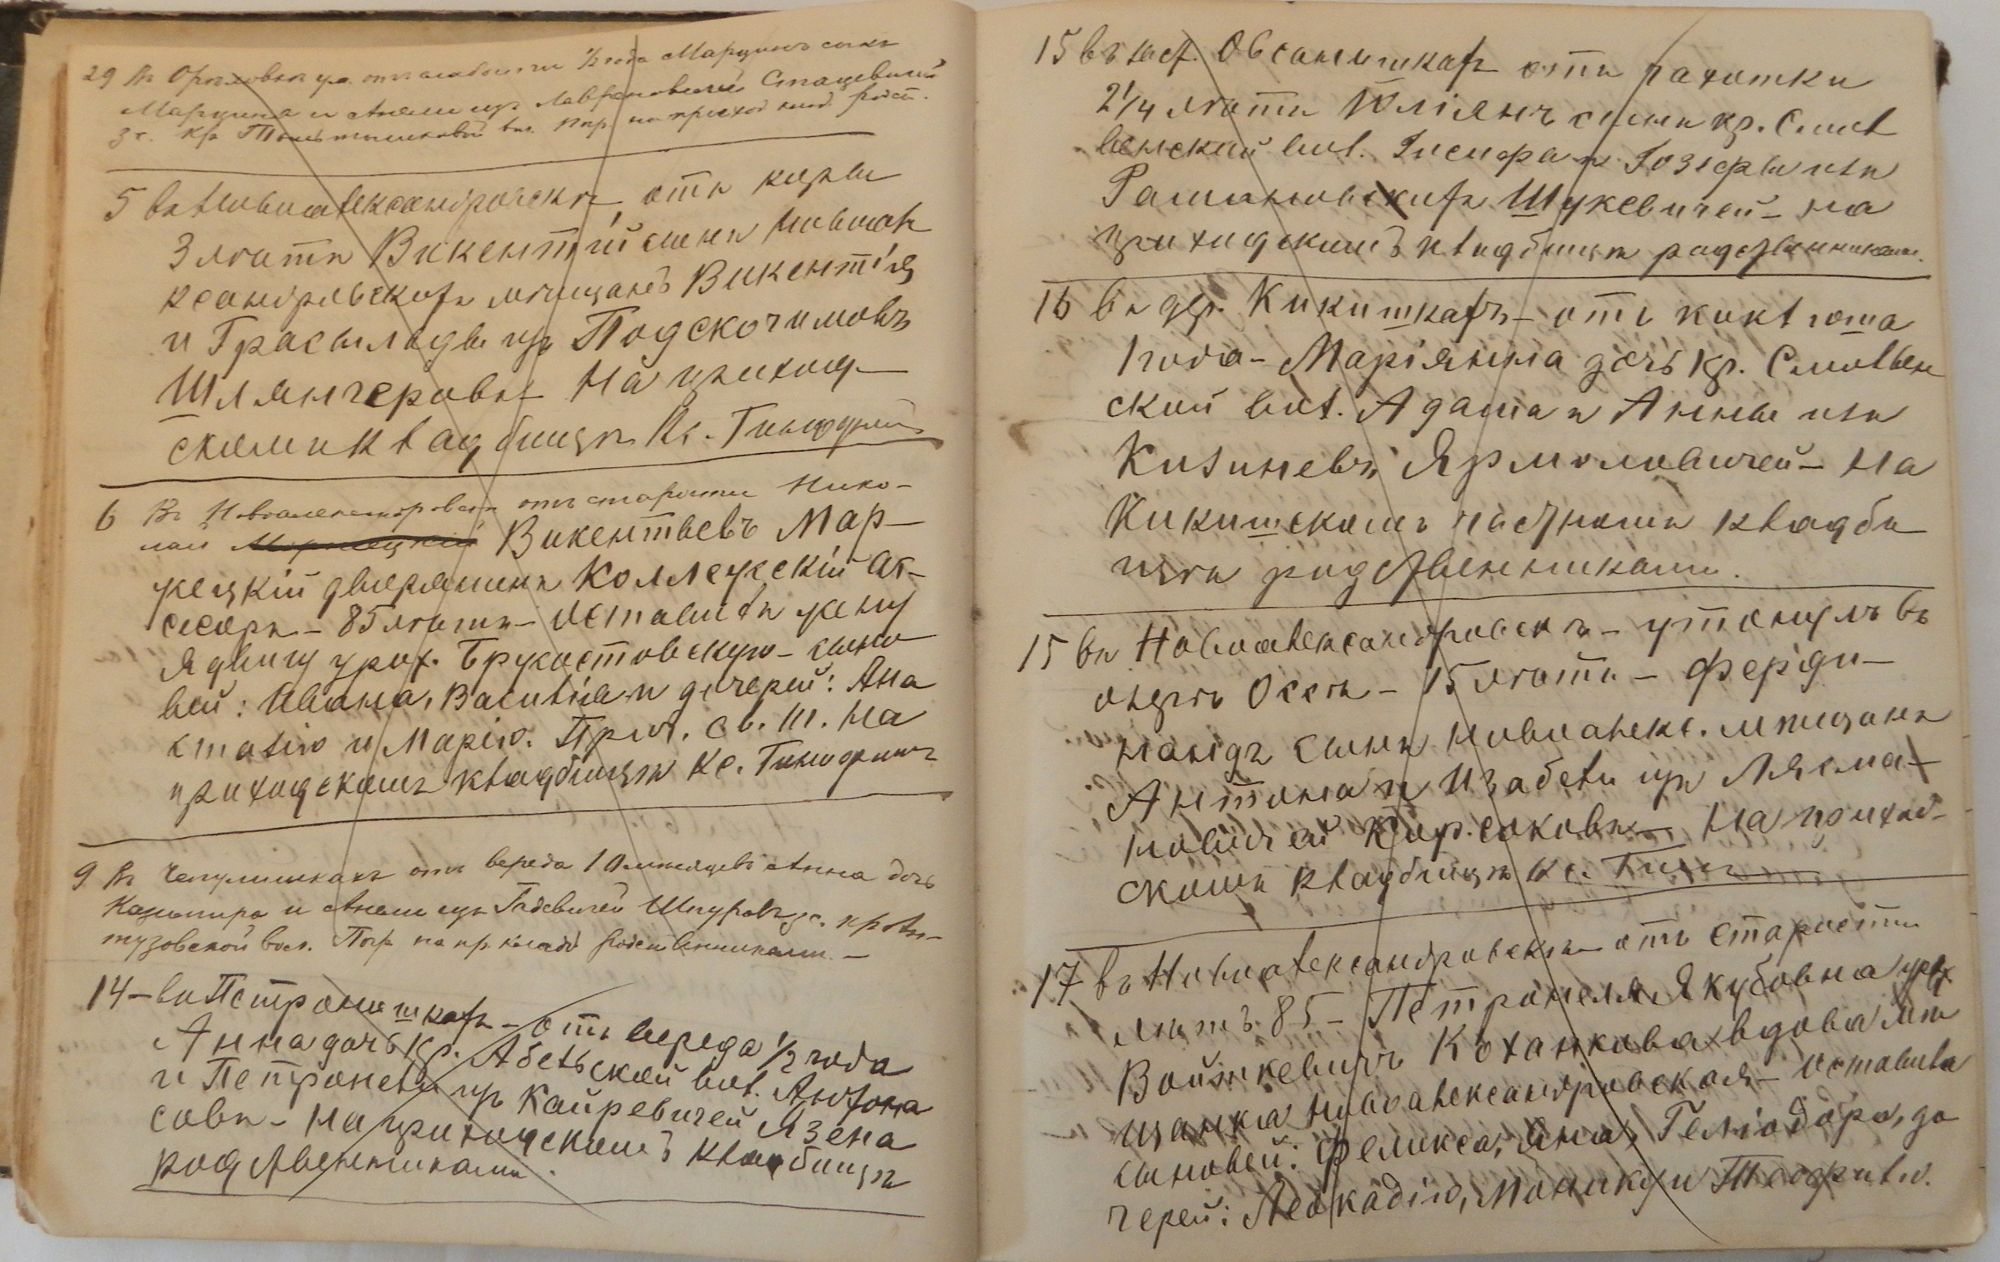 29 Въ отъ слабости ½ года Мартинъ сынъ
Мартина и Анели изъ Лавреновичей Стацевичей
3 г. кр вол. на приход клад родст.
5 въ Новоалександровскѣ, отъ коры
3 лѣтъ Викентій сынъ Новоале
ксандровскихъ мѣщанъ Викентія
и Грасыльды изъ Подскочимовъ
Шлянгеровъ на приход
скомъ кладбищѣ Кс. Тимофей
6 Въ Новоалександровскѣ отъ старости Нико-
лай Викентьевъ Мар-
жецкій дворянинъ Коллежскій Ас-
сесоръ - 85 лѣтъ - оставилъ жену
Ядвигу урож. Брукостовскую - сыно
вей: Ивана, Василія и дочерей: Ана
сталію и Марію. Прич. св. т. На
приходскомъ кладбищѣ Кс. Тимофей
9 Въ Чепулишкахъ отъ вереда 10 мѣсяцевъ Анна дочь
Казимира и Анели изъ Гадевичей Шкуровъ
тузовской вол. Погр на пр кладб родственниками. -
14 - въ Петронишкахъ - отъ вереда ½ года
Анна дочь кр. Абельской вол. Антона
и Петронели изъ Кайревичей Язена
совъ - на приходскомъ кладбищѣ
родственниками.
15 въ заст. Овсанишкахъ отъ сахотки
2¼ лѣтъ Юліянъ сынъ кр. Смол
венской вол. Іосифа и Іозефы изъ
Рашимовскихъ Шукевичей - на
приходскомъ кладбищѣ родственниками.
16 въ дер. Кикишкахъ - отъ коклюша
1 года - Маріянна дочь кр. Смолвен
ской вол. Адама и Анны изъ
Кизиневъ Ярмоловичей - На
Кикишскомъ частномъ кладби
щѣ родственниками.
15 въ Новоалександровскѣ - утонулъ въ
озерѣ Осса - 15 лѣтъ - Ферди-
нандъ сынъ новоалекс. мѣщанъ
Антона и Изабели изъ Лясма-
новичей Корсаковъ - На приход-
скомъ кладбищѣ Кс. Тим
17 въ Новоалександровскѣ - отъ старости
лѣтъ 85 - Петронеля Якубовна урж
Войткевичъ Коханкова вдова мѣ
щанка новоалександровская - оставила
сыновей: Феликса, Яна, Геліодора, до
черей: Леокадію, Монику и Теофилю.